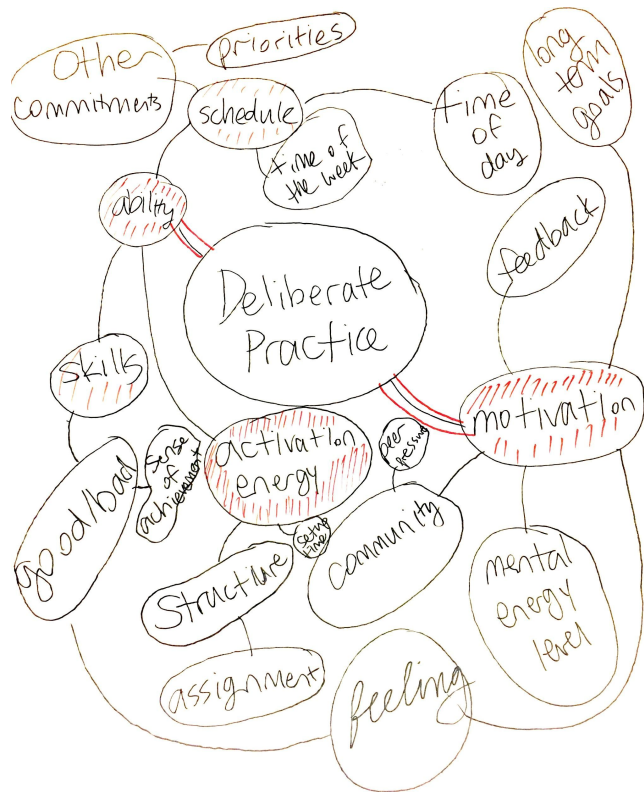 Other
commitments
priorities
schedule
time of
the week
time
of
day
long
term
goals
ability
feedback
Deliberate
Practice
skills
motivation
activation
energy
peer
pressure
sense
of
achievement
good/bad
setup
time
community
structure
mental
energy
level
assignment
feeling